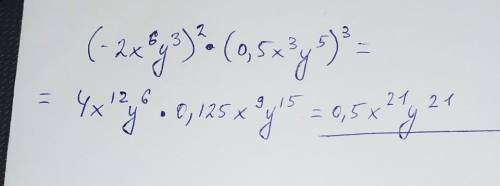 (-2x⁶y³)²·(0,5x³y⁵)³=
= 4x¹²y⁶·0,125x⁹y¹⁵=0,5x²¹y²¹